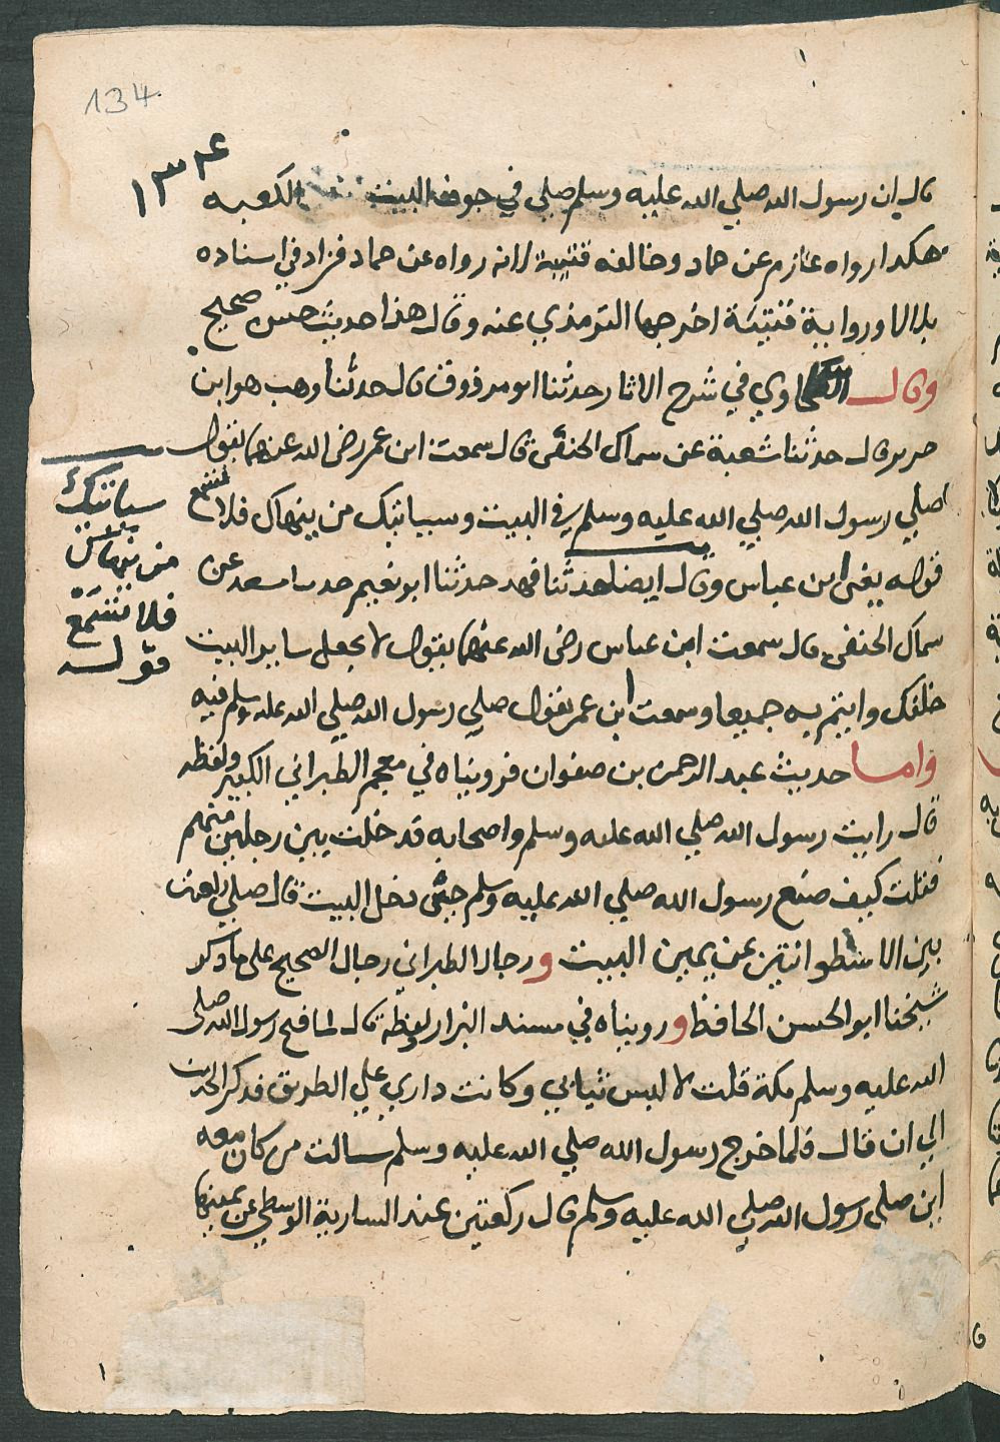 134
١٣٤
قال ان رسول الله صلي الله عليه وسلم صلي في جوف البيت الكعبه
هكدا رواه عازم عن حماد وخالفه قتيبة لانه رواه عن حماد فزاد في اسناده
بلالا ورواية قتيبة اخرجها الترمذي عنه وقال هذا حديث حسن صحيح
وقال الطحاوي في شرح الاثار حدثنا ابو مرزوق قال حدثنا وهب هو ابن
جرير قال حدثنا شعبة عن سماك الحنفى قال سمعت ابن عمر رضى الله عنهما يقول
صلي رسول الله صلي الله عليه وسلم في البيت وسياتيك من ينهاك فلا تسمع
قوله يعنى ابن عباس وقال ايضا حدثنا فهد حدثنا ابو نعيم حدثنا مسعد عن
سماك الحنفى قال سمعت ابن عباس رضى الله عنهما يقول لا تجعل ساير البيت
خلفك وايتم به جميعا وسمعت ابن عمر يقول صلي رسول الله صلي الله عليه وسلم فيه
واما حديث عبد الرحمن بن صفوان فرويناه في معجم الطبراني الكبير ولفظه
قال رايت رسول الله صلي الله عليه وسلم واصحابه قد خلت بين رجلين منهم
فقلت كيف صنع رسول الله صلي الله عليه وسلم حتى دخل البيت قال صلي ركعتين
بين الاسطوانتين عن يمين البيت ورجال الطبراني رجال الصحيح على ما ذكر
شيخنا ابو الحسن الحافظ وروبناه في مسند البزار لوظه قال لما فتح رسول الله صلى
الله عليه وسلم مكة قلت لا لبس ثيابي وكانت داري على الطريق فدكر الحديث
الي ان قال فلما خرج رسول الله صلي الله عليه وسلم سالت من كان معه
اين صلى رسول الله صلي الله عليه وسلم قال ركعتين عند السارية الوسطي عن يمينها
سياتيك
من ينهاك
فلا تسمع
قوله